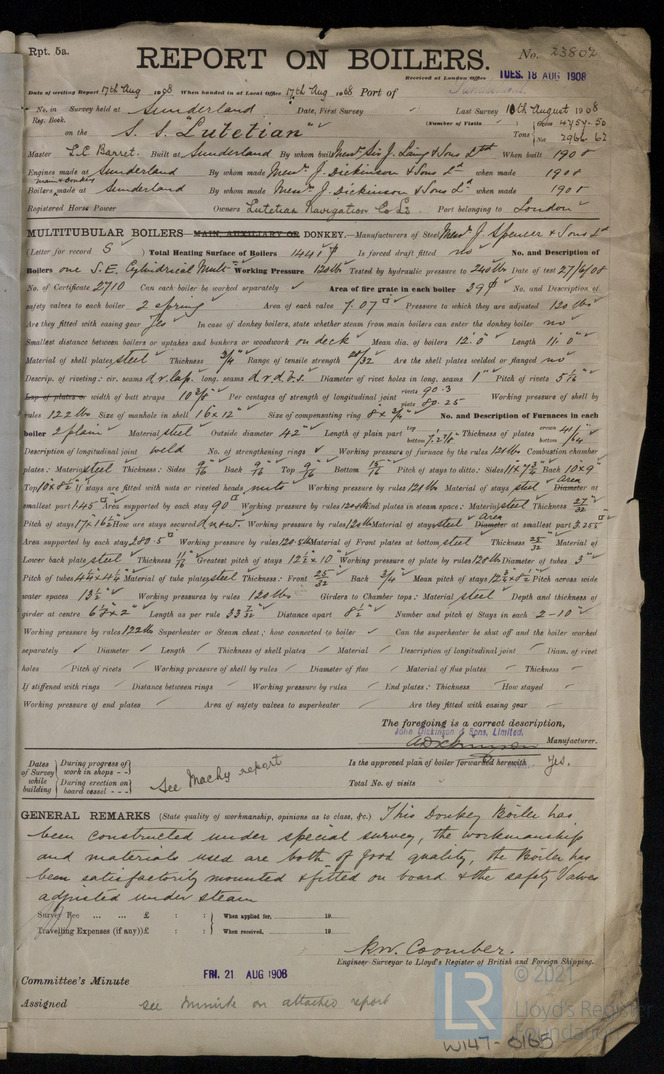 Rpt. 5a.
REPORT ON BOILERS.
No. 23802
Received at London Office TUES. 18 AUG 1908
Date of writing Report 17th Aug 1908 When handed in at Local Office 17th Aug 1908 Port of Sunderland
No. in Survey held at Sunderland Date, First Survey Last Survey 18th August 1908
Reg. Book.
(Number of Visits
on the S. S. "Lutetian" Tons { Gross 4757.50
Net 2966.62
Master L.C. Barret. Built at Sunderland By whom built Messrs Sir J. Laing & Sons Ltd When built 1908
Engines made at Sunderland By whom made Messrs J. Dickinson & Sons Ld when made 1908
main & Donkey
Boilers made at Sunderland By whom made Messrs J. Dickinson & Sons Ld when made 1908
Registered Horse Power Owners Lutetian Navigation Co Ld. Port belonging to London
MULTITUBULAR BOILERS MAIN, AUXILIARY OR DONKEY.—Manufacturers of Steel Messrs J. Spencer & Sons Ld
(Letter for record S) Total Heating Surface of Boilers 1441 Is forced draft fitted no No. and Description of
Boilers one S.E. Cylindrical Mult. Working Pressure 120 lbs Tested by hydraulic pressure to 240 lbs Date of test 27/6/08
No. of Certificate 2710 Can each boiler be worked separately Area of fire grate in each boiler 39 No. and Description of
safety valves to each boiler 2 spring Area of each valve 7.07 Pressure to which they are adjusted 120 lbs
Are they fitted with easing gear Yes In case of donkey boilers, state whether steam from main boilers can enter the donkey boiler no
Smallest distance between boilers or uptakes and bunkers or woodwork on deck Mean dia. of boilers 12'.0" Length 11'.0"
Material of shell plates steel Thickness 3/4" Range of tensile strength 28/32 Are the shell plates welded or flanged no
Descrip. of riveting: cir. seams d.r.lap. long. seams d.r.d.b.s. Diameter of rivet holes in long. seams 1" Pitch of rivets 5 1/16"
Lap of plates or width of butt straps 10 3/8" Per centages of strength of longitudinal joint rivets 90.3 plate 80.25 Working pressure of shell by
rules 122 lbs Size of manhole in shell 16 x 12" Size of compensating ring 8 x 3/4" No. and Description of Furnaces in each
boiler 2 plain Material steel Outside diameter 42" Length of plain part top bottom 7.2 7/8" Thickness of plates crown bottom 41/64"
Description of longitudinal joint weld No. of strengthening rings Working pressure of furnace by the rules 121 lbs Combustion chamber
plates: Material steel Thickness: Sides 9/16 Back 9/16 Top 9/16 Bottom 15/16 Pitch of stays to ditto: Sides 11 x 7 3/4 Back 10 x 9"
Top 10 x 8 1/2 If stays are fitted with nuts or riveted heads nuts Working pressure by rules 121 lbs Material of stays steel Area Diameter at
smallest part 1.45 Area supported by each stay 90 Working pressure by rules 120 lbs End plates in steam space: Material steel Thickness 27/32
Pitch of stays 17 x 16 1/2 How are stays secured d.n & w. Working pressure by rules 120 lbs Material of stays steel Area Diameter at smallest part 3.255
Area supported by each stay 280.5 Working pressure by rules 120.5 lbs Material of Front plates at bottom steel Thickness 25/32 Material of
Lower back plate steel Thickness 11/16 Greatest pitch of stays 12 1/2 x 10 Working pressure of plate by rules 120 lbs Diameter of tubes 3"
Pitch of tubes 4 1/4 x 4 1/4 Material of tube plates steel Thickness: Front 25/32 Back 3/4 Mean pitch of stays 12 3/4 x 8 1/2 Pitch across wide
water spaces 13 1/2 Working pressures by rules 120 lbs Girders to Chamber tops: Material steel Depth and thickness of
girder at centre 6 7/8 x 2" Length as per rule 33 7/32 Distance apart 8 1/2 Number and pitch of Stays in each 2-10"
Working pressure by rules 122 lbs Superheater or Steam chest; how connected to boiler Can the superheater be shut off and the boiler worked
separately Diameter Length Thickness of shell plates Material Description of longitudinal joint Diam. of rivet
holes Pitch of rivets Working pressure of shell by rules Diameter of flue Material of flue plates Thickness
If stiffened with rings Distance between rings Working pressure by rules End plates: Thickness How stayed
Working pressure of end plates Area of safety valves to superheater Are they fitted with easing gear
The foregoing is a correct description,
John Dickinson & Sons, Limited.
A Dickinson Manufacturer.
Dates of Survey while building { During progress of work in shops - - During erection on board vessel - - - } See Machy report
Is the approved plan of boiler forwarded herewith Yes.
Total No. of visits
GENERAL REMARKS (State quality of workmanship, opinions as to class, &c.) This Donkey Boiler has
been constructed under special survey, the workmanship
and materials used are both of good quality, the Boiler has
been satisfactorily mounted & fitted on board & the safety valves
adjusted under steam
Survey Fee ... ... £ : : When applied for, 19
Travelling Expenses (if any) £ : : When received, 19
R.W. Coomber.
Engineer-Surveyor to Lloyd's Register of British and Foreign Shipping.
Committee's Minute FRI. 21 AUG 1908
Assigned see minute on attached report
LR © 2021
Lloyd's Register
Foundation
W147-0165